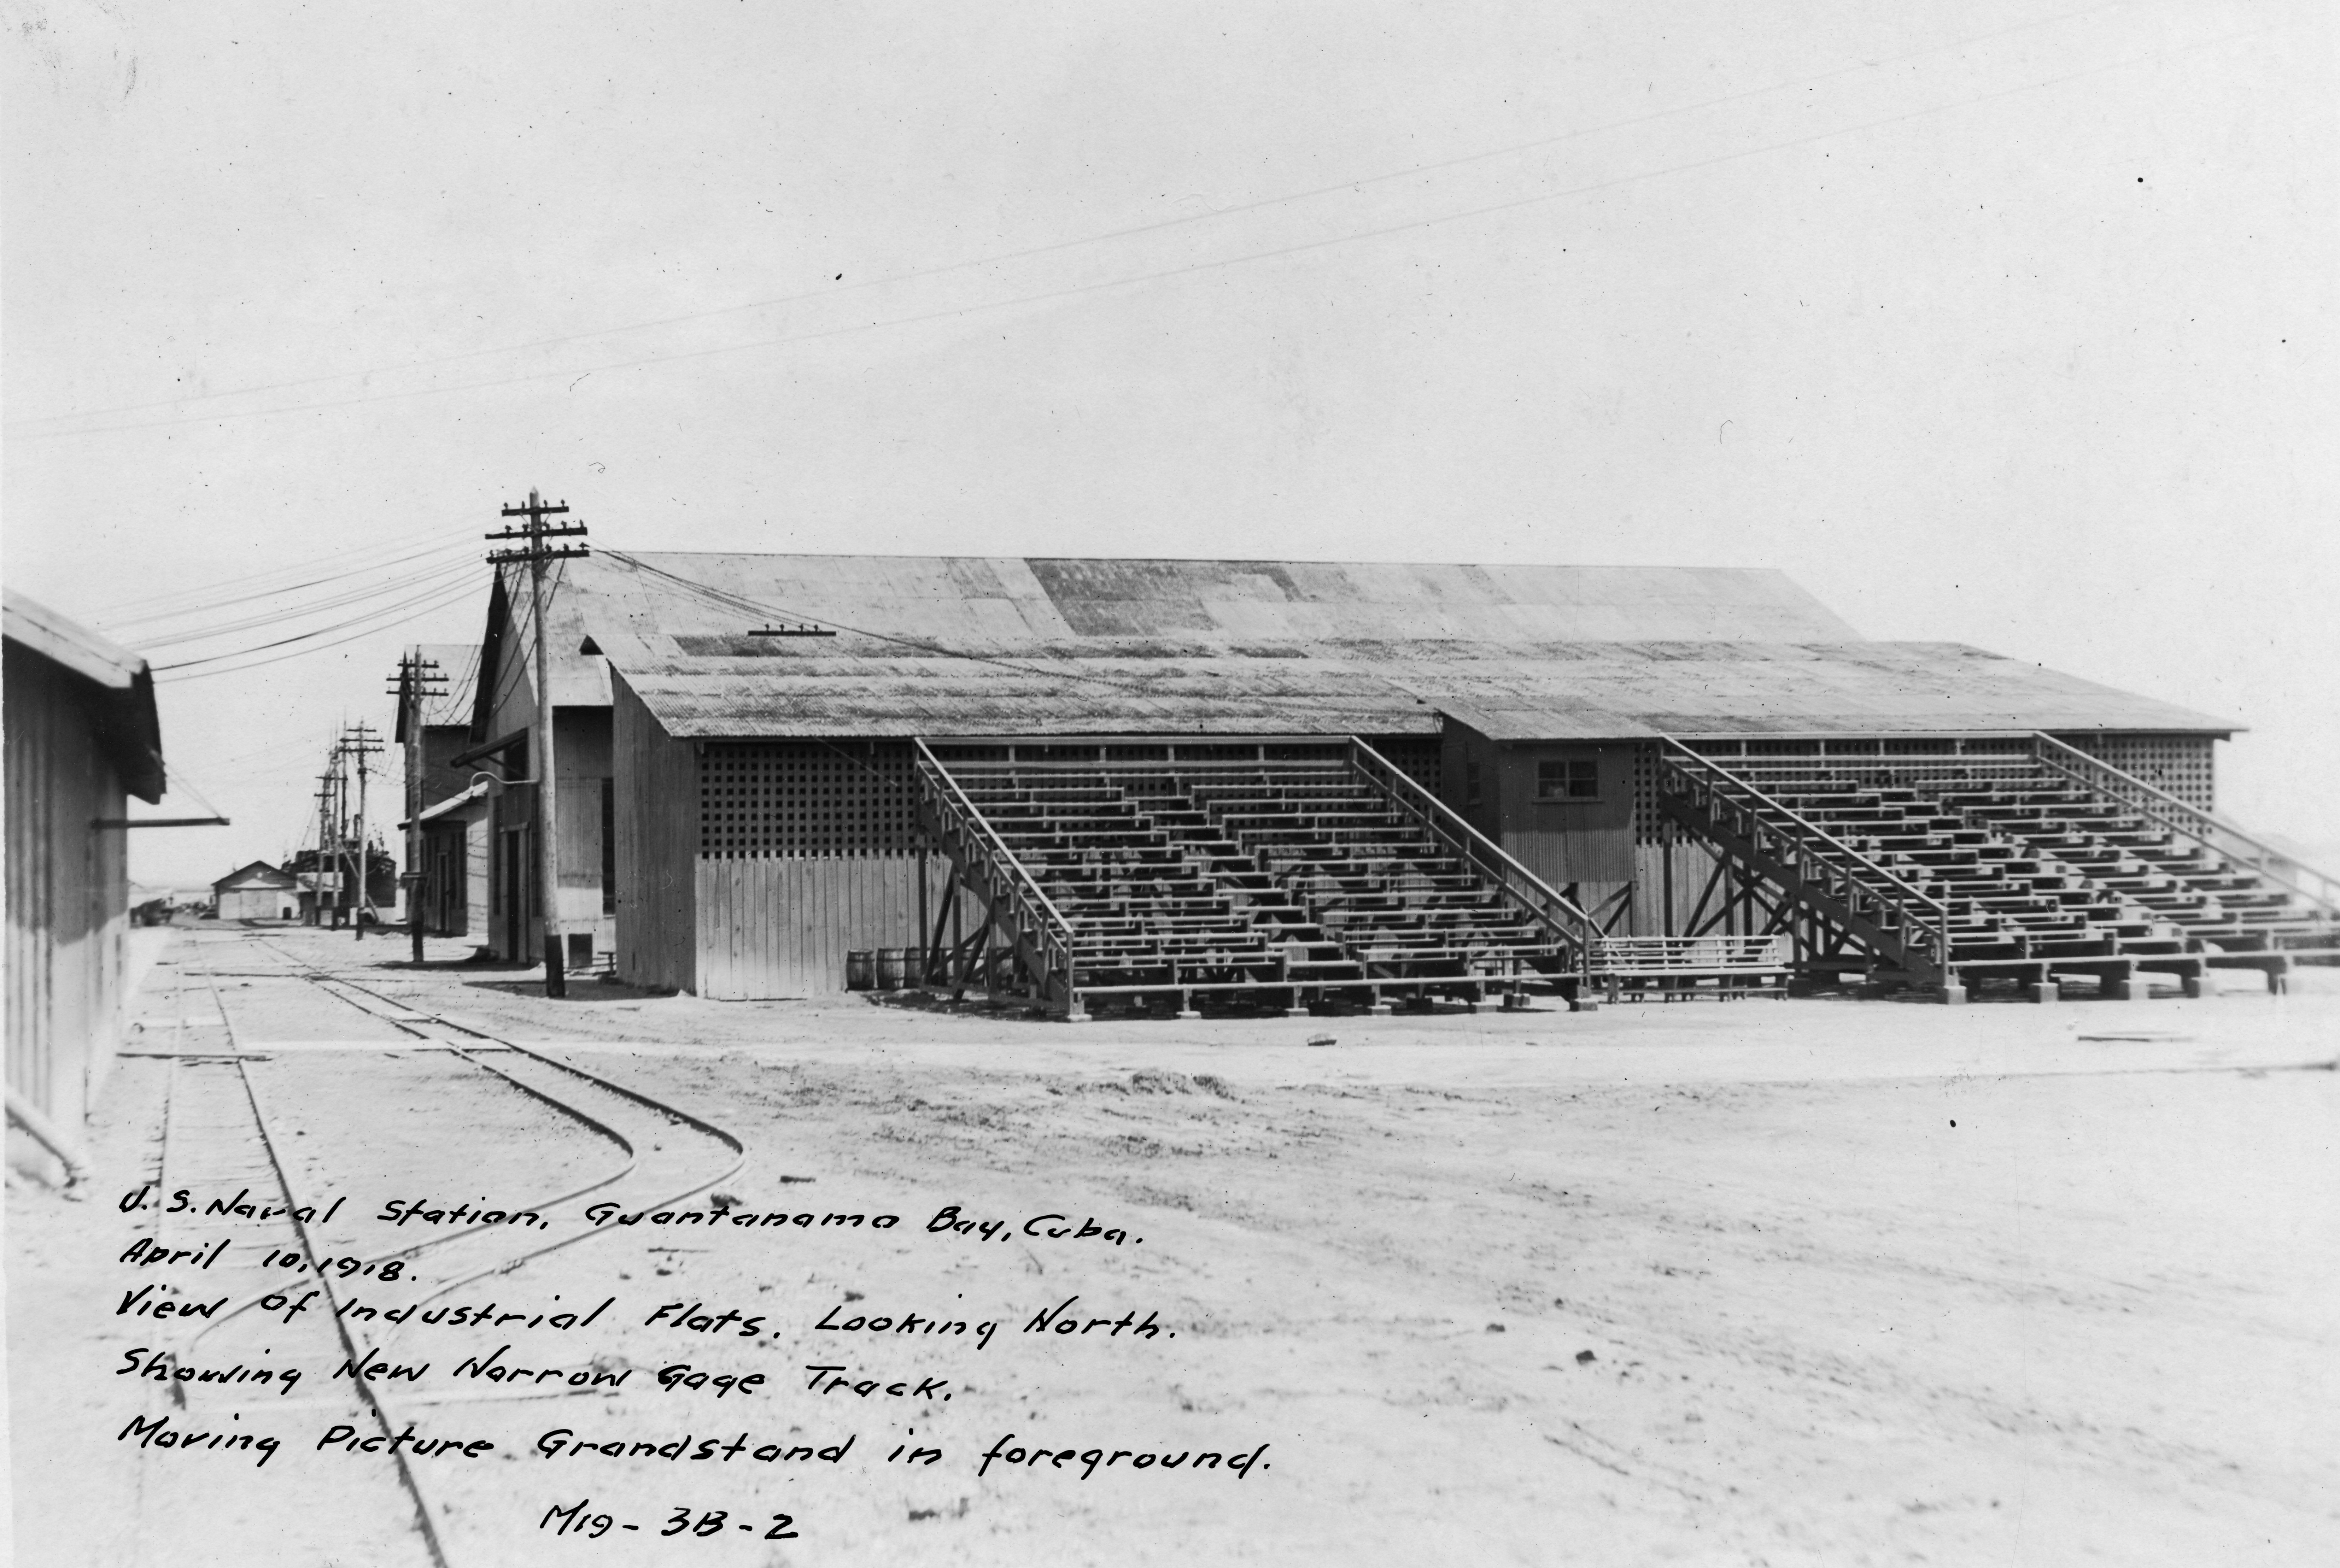 U. S. Naval Station, Guantanamo Bay, Cuba.
April 10, 1918.
View Of Industrial Flats. Looking North.
Showing New Narrow Gage Track.
Moving Picture Grandstand in foreground.
M19-3B-2